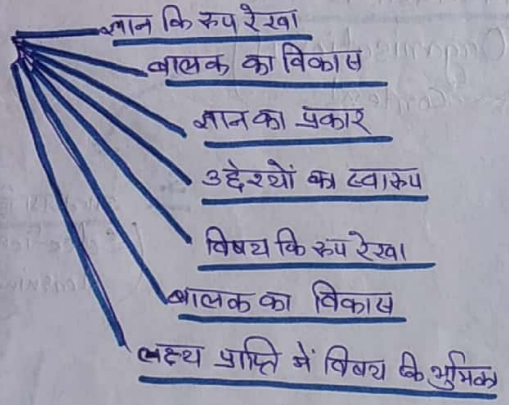 ज्ञान कि रुपरेखा
बालक का विकास
ज्ञान का प्रकार
उद्देश्यों का स्वारुप
विषय कि रुपरेखा
बालक का विकास
लक्ष्य प्राप्ति में विषय कि भुमिका